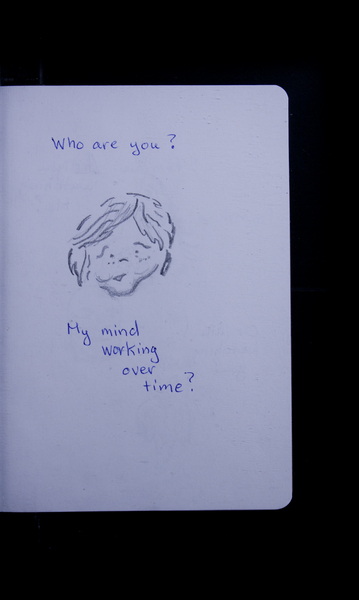 Who are you?
My mind
working
over
time?